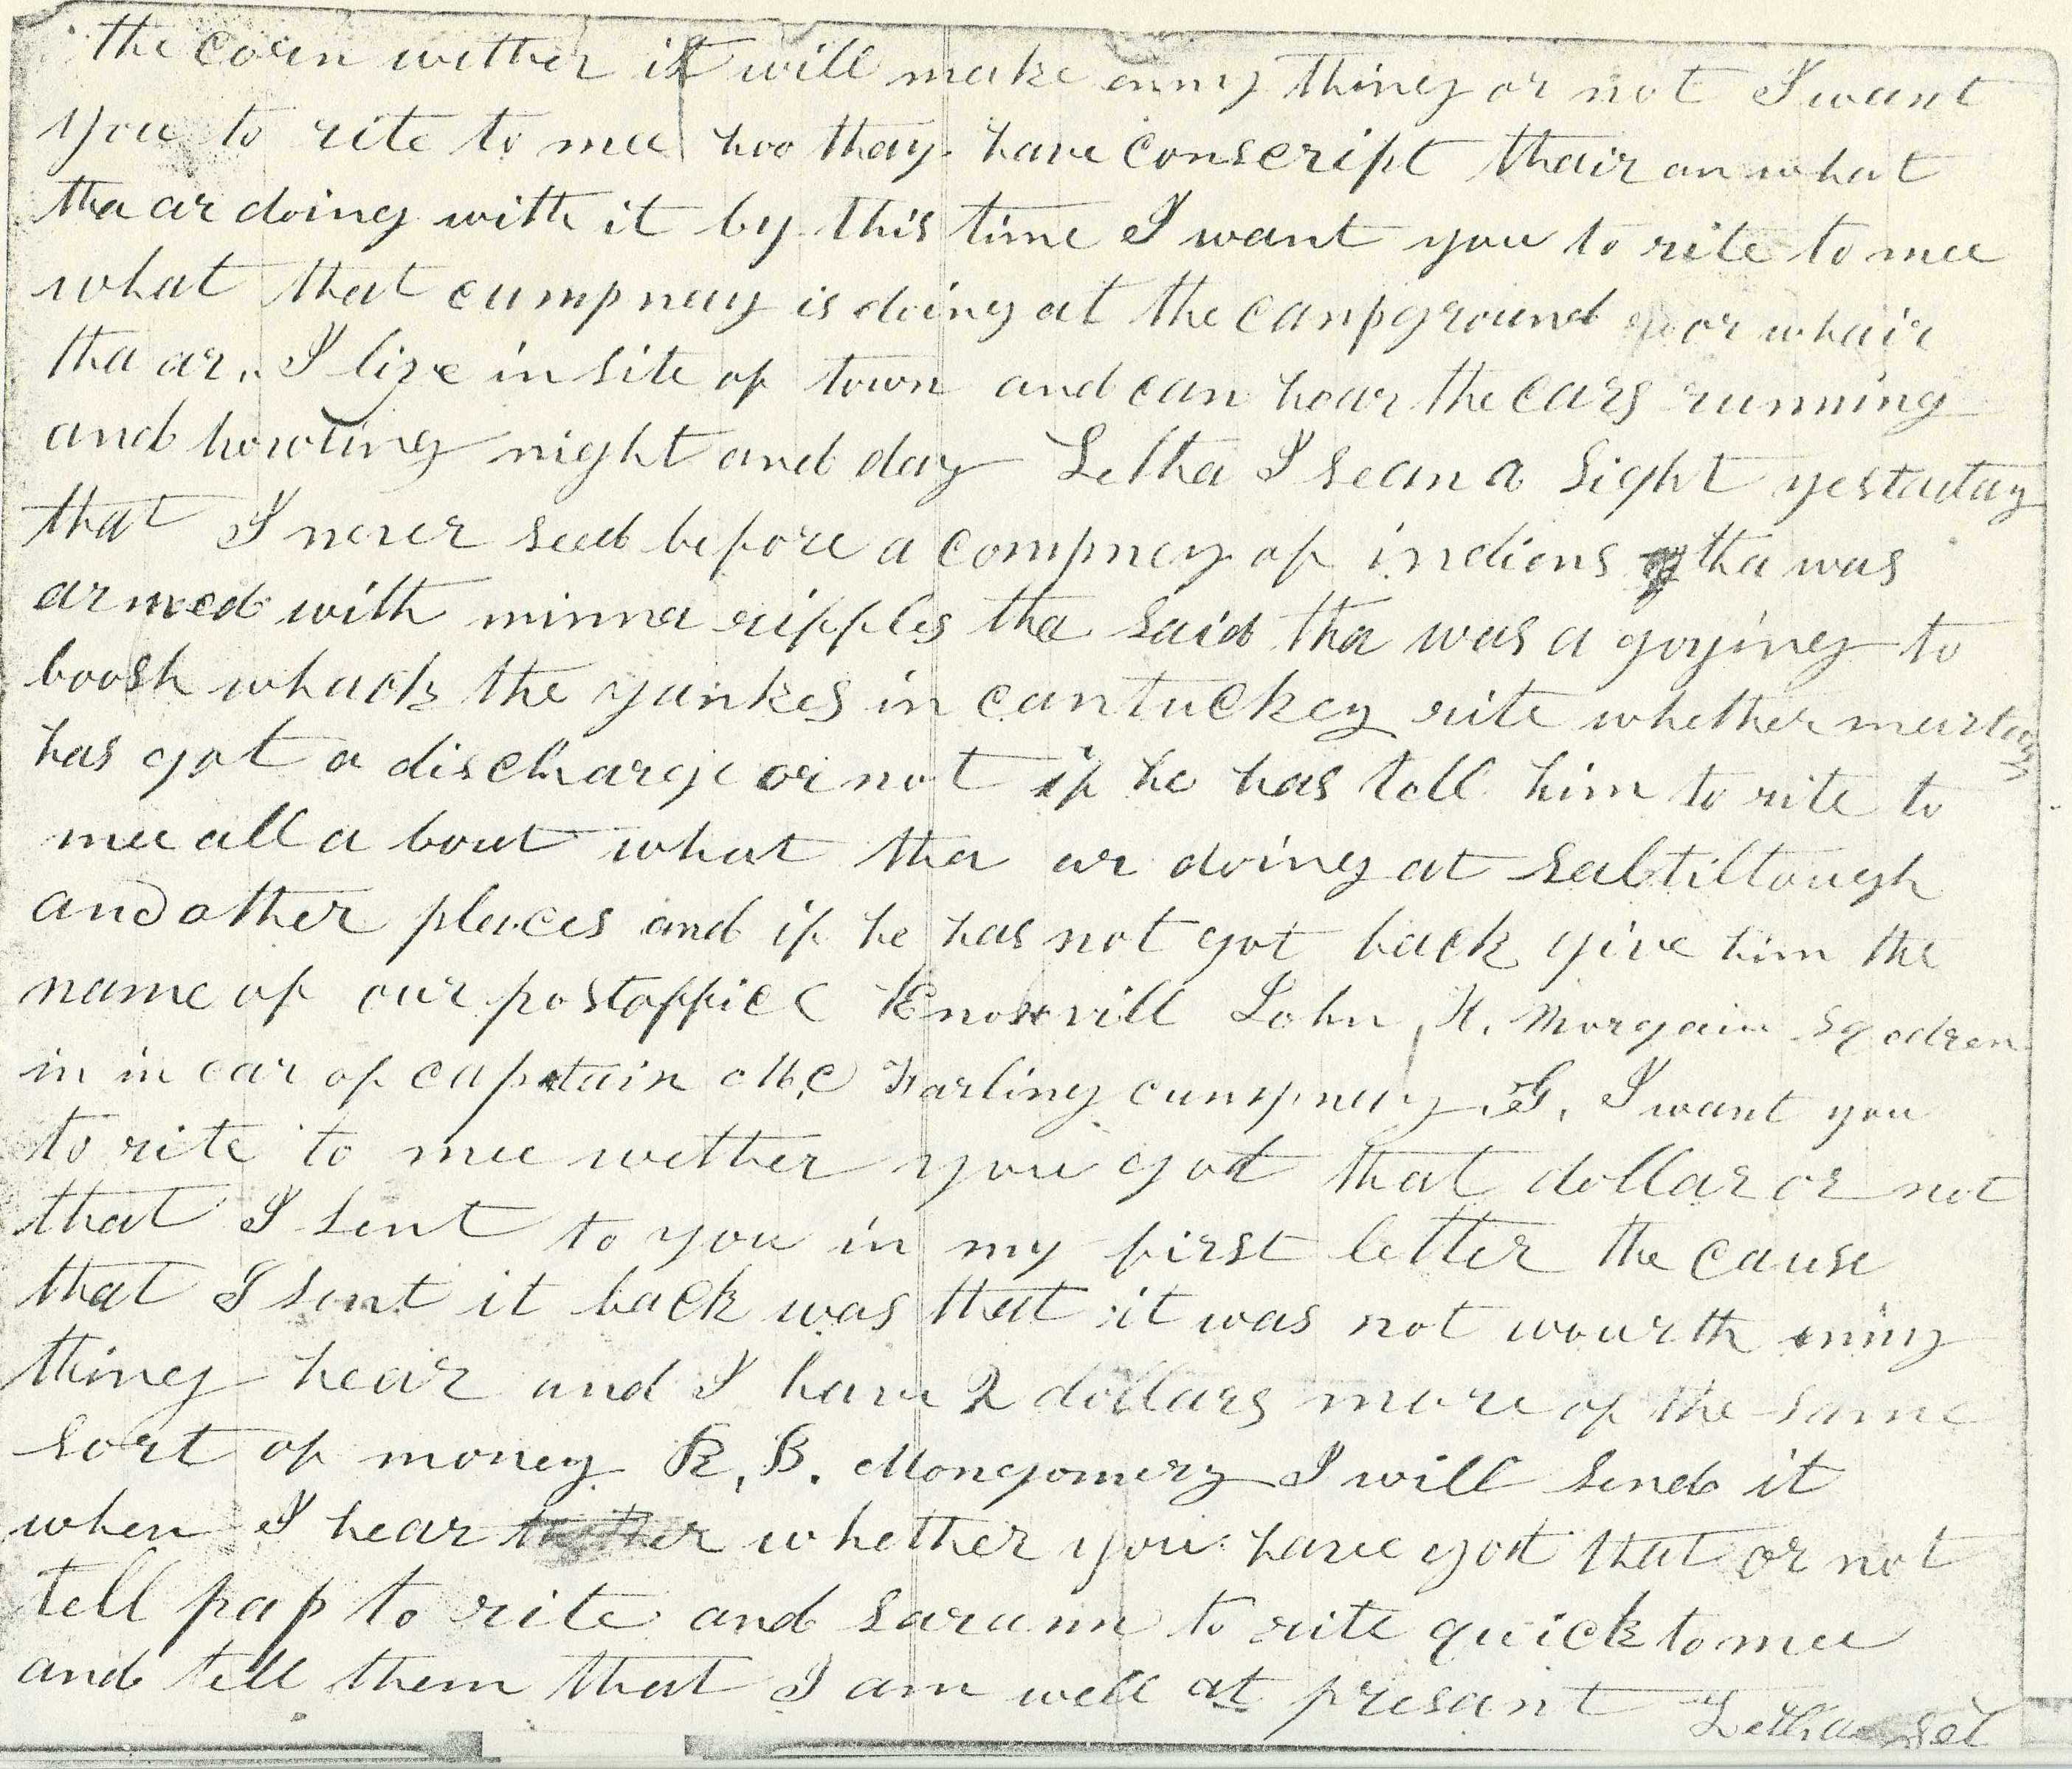 the corn wether it will make enny thing or not I want
you to rite to mee hoo thay have conscript thair an what
tha ar doing with it by this time I want you to rite to mee
what that cumpnay is doing at the canpground or whair
tha ar. I live in site of town and can hear the cars running
and howling night and day Letha I sean a Sight yestaday
that I never seed before a compney of indiens tha was
armed with minna riffles tha said tha was a goying to
boosh whack the yankes in cantuckey rite whether
has got a discharge or not if he has tell him to rite to
mee all a bout what tha ar doing at Saltiltough
and other places and if he has not got back give him the
name of our postoffice Knoxvill John H. Morgain Sqodren
in in car of captain Mc Farling cumpnay G. I want you
to rite to mee wether you got that dollar or not
that I sent to you in my first letter the cause
that I sent it back was that it was not wourth enny
thing hear and I have 2 dollars more of the same
sort of money R. B. Montgomery I will send it
when I hear whether you have got that or not
tell pap to rite and sarann to rite quick to mee
and tell them that I am well at presant Letha